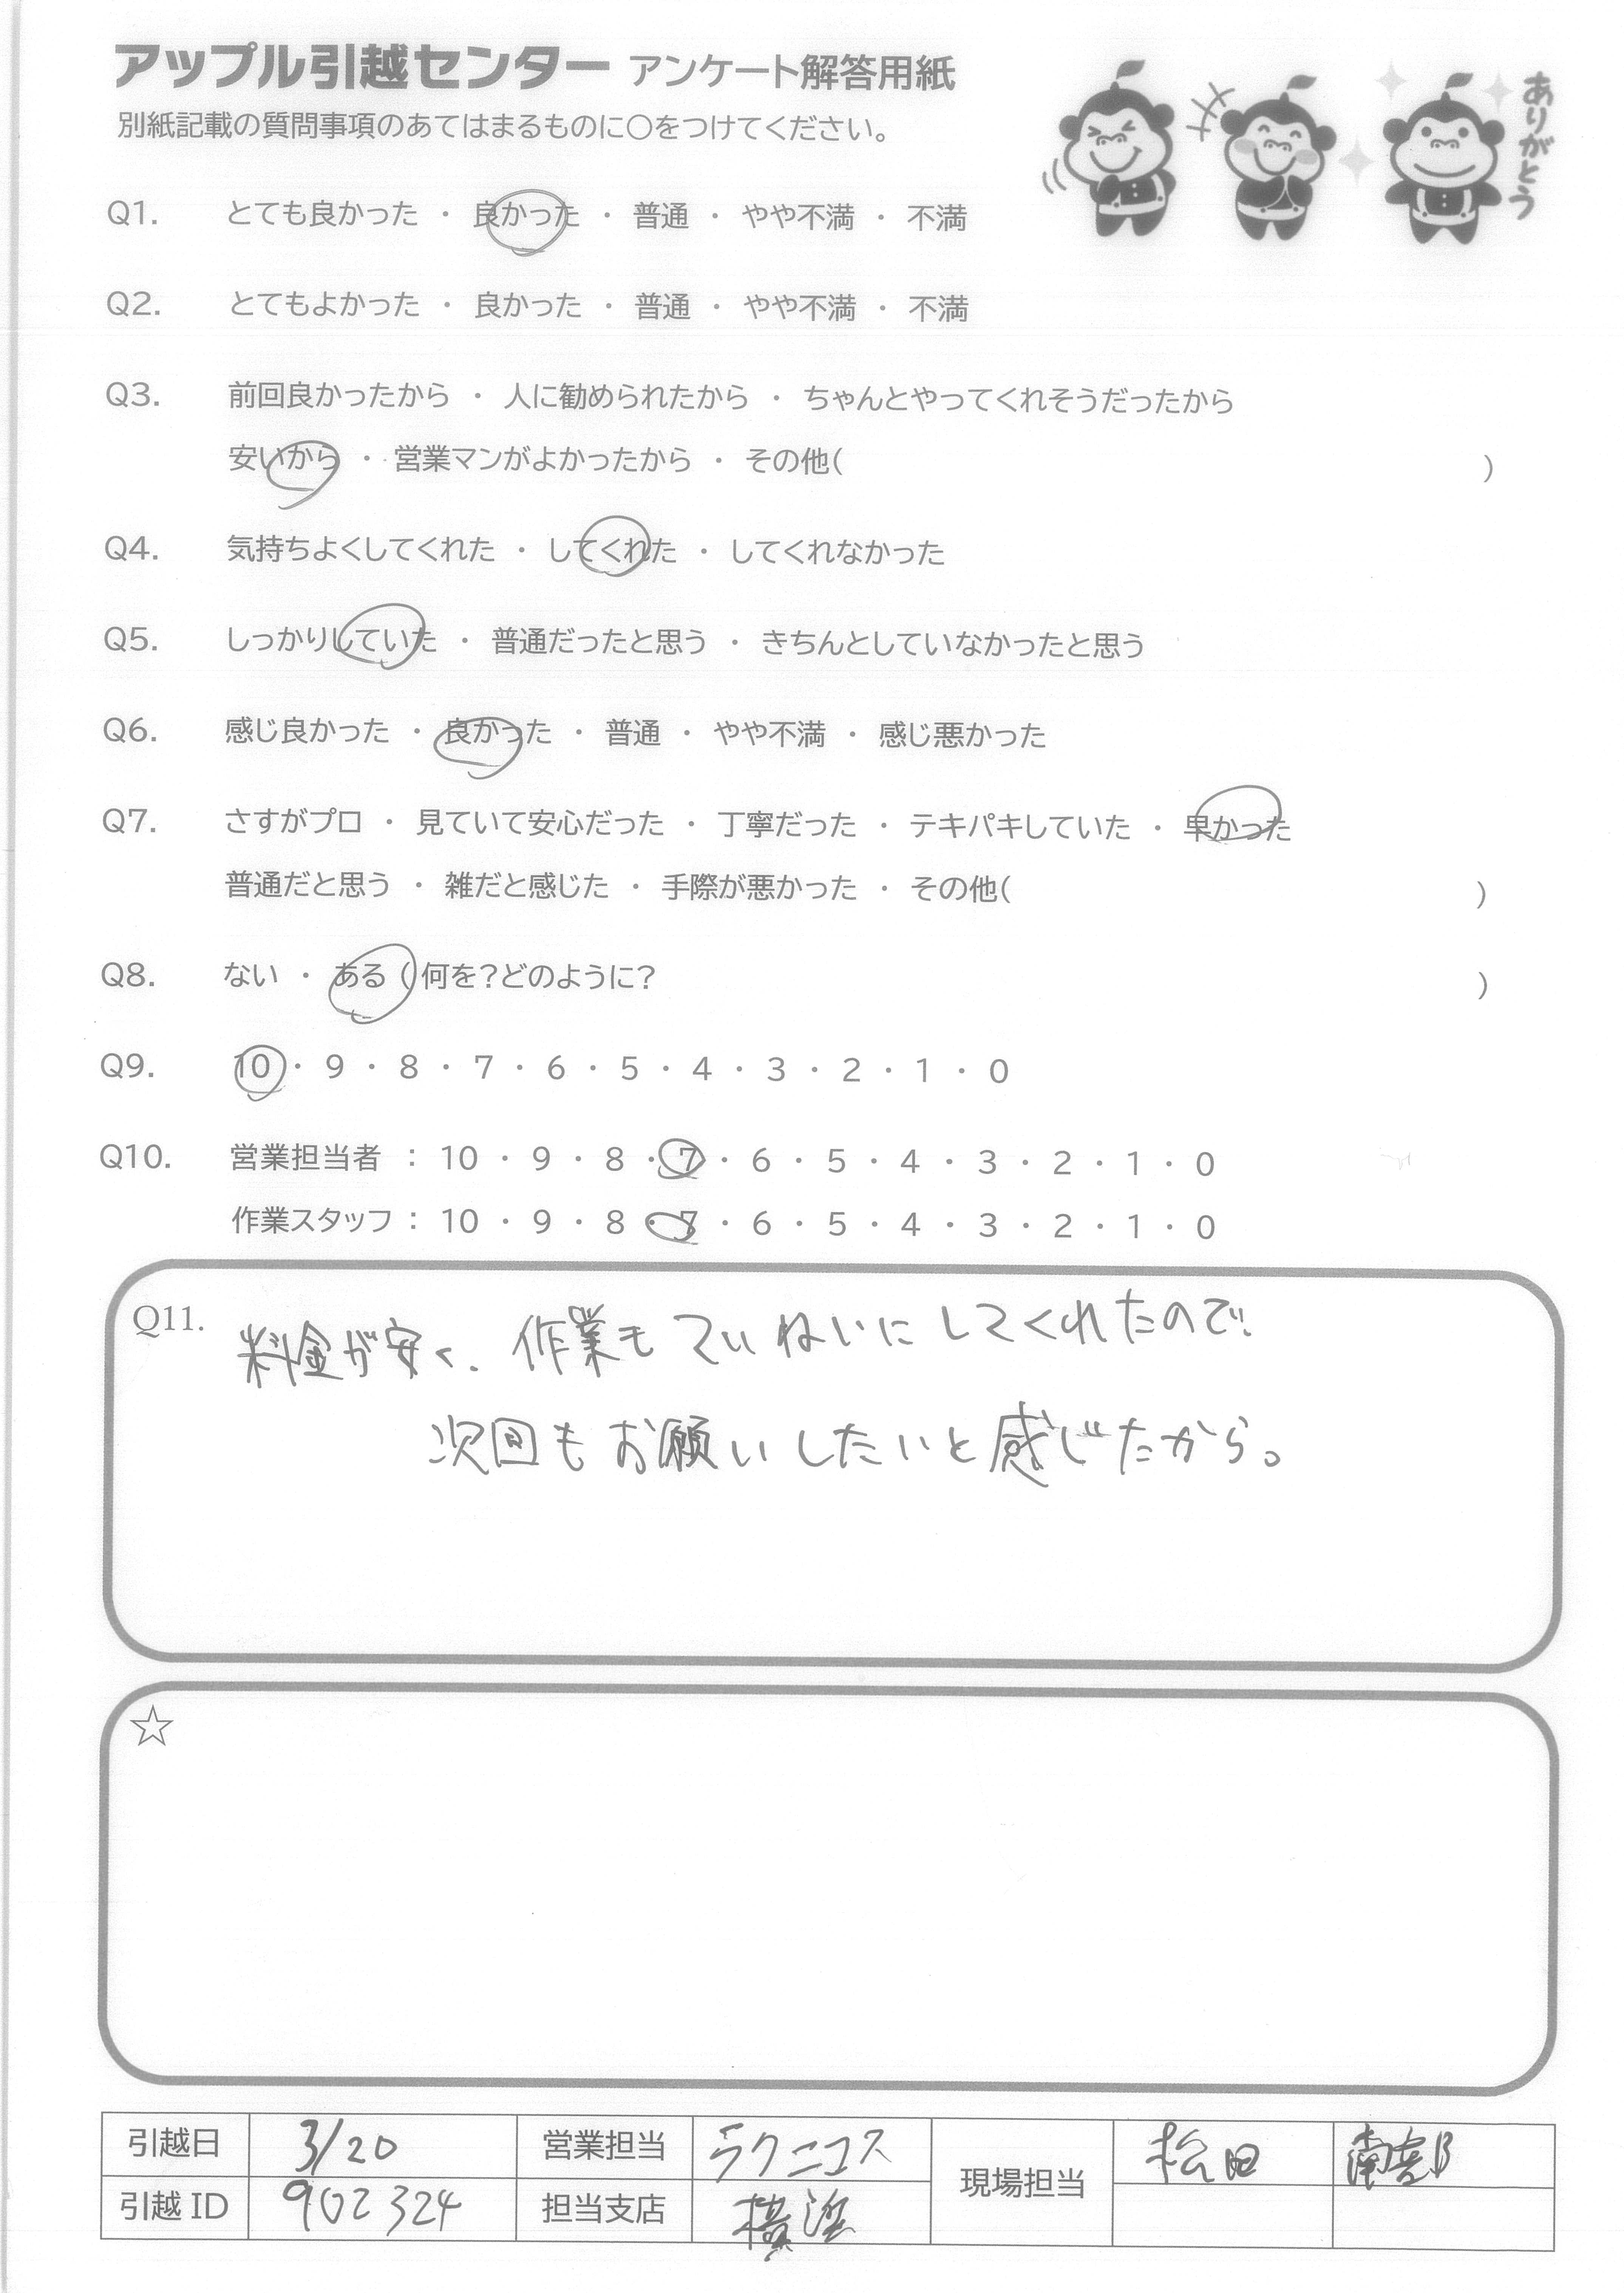 アップル引越センター アンケート解答用紙
別紙記載の質問事項のあてはまるものに〇をつけてください。
ありがとう
Q1. とても良かった ・ 良かった ・ 普通 ・ やや不満 ・ 不満
Q2. とてもよかった ・ 良かった ・ 普通 ・ やや不満 ・ 不満
Q3. 前回良かったから ・ 人に勧められたから ・ ちゃんとやってくれそうだったから
安いから ・ 営業マンがよかったから ・ その他( )
Q4. 気持ちよくしてくれた ・ してくれた ・ してくれなかった
Q5. しっかりしていた ・ 普通だったと思う ・ きちんとしていなかったと思う
Q6. 感じ良かった ・ 良かった ・ 普通 ・ やや不満 ・ 感じ悪かった
Q7. さすがプロ ・ 見ていて安心だった ・ 丁寧だった ・ テキパキしていた ・ 早かった
普通だと思う ・ 雑だと感じた ・ 手際が悪かった ・ その他( )
Q8. ない ・ ある ( 何を?どのように? )
Q9. 10 ・ 9 ・ 8 ・ 7 ・ 6 ・ 5 ・ 4 ・ 3 ・ 2 ・ 1 ・ 0
Q10. 営業担当者 : 10 ・ 9 ・ 8 ・ 7 ・ 6 ・ 5 ・ 4 ・ 3 ・ 2 ・ 1 ・ 0
作業スタッフ : 10 ・ 9 ・ 8 ・ 7 ・ 6 ・ 5 ・ 4 ・ 3 ・ 2 ・ 1 ・ 0
Q11. 料金が安く、作業もていねいにしてくれたので、
次回もお願いしたいと感じたから。
☆
引越日 3/20 営業担当 ラクニコス 現場担当 松田 南部
引越ID 902324 担当支店 横浜